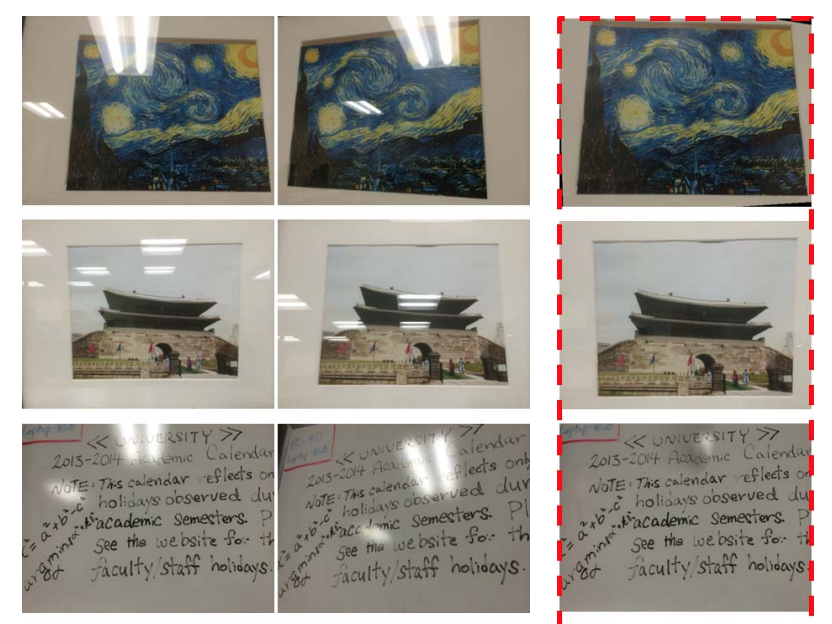 << UNIVERSITY >>
2013-2014 Academic Calendar
NOTE: This calendar reflects on
holidays observed dur
academic semesters. P
See the website for th
faculty/staff holidays.
= a²+b²-c²
arg min
<< UNIVERSITY >>
2013-2014 Academic Calendar
NOTE: This calendar reflects only
holidays observed dur
academic semesters. Pl
See the website for th
faculty/staff holidays.
= a²+b²-c²
arg min
<< UNIVERSITY >>
2013-2014 Academic Calendar
NOTE: This calendar reflects on
holidays observed du
academic semesters. P
See the website for th
faculty/staff holidays.
= a²+b²-c²
arg min